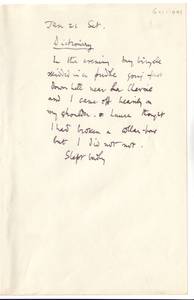 Jan 21 Sat.
Dictionary
In the evening my bicycle
skidded in a puddle going fast
down hill near the
and I came off heavily on
my shoulder. I thought
I had broken a collar-bone
but I did not.
Slept badly